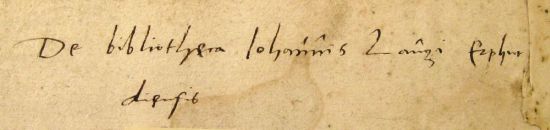 De bibliotheca Iohannis Langi Erphur
diensis